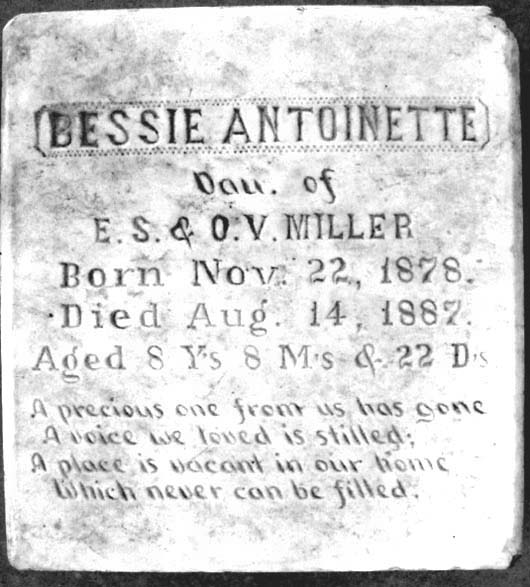 BESSIE ANTOINETTE
Dau. of
E. S. & O. V. MILLER
Born Nov. 22, 1878.
Died Aug. 14, 1887.
Aged 8 Y's 8 M's & 22 D's
A precious one from us has gone
A voice we loved is stilled;
A place is vacant in our home
Which never can be filled.